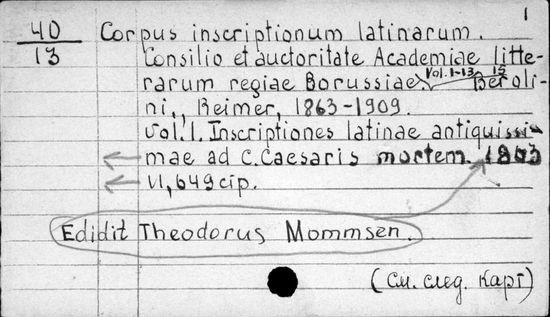 1
40 Corpus inscriptionum latinarum.
13 Consilio et auctoritate Academiae litte-
rarum regiae Borussiae, Vol. 1-13, 15 Beroli-
ni, Reimer, 1863-1909.
Vol. 1. Inscriptiones latinae antiquissi-
mae ad C. Caesaris mortem. 1863
VI, 649 стр.
Edidit Theodorus Mommsen.
(См. след. карт)